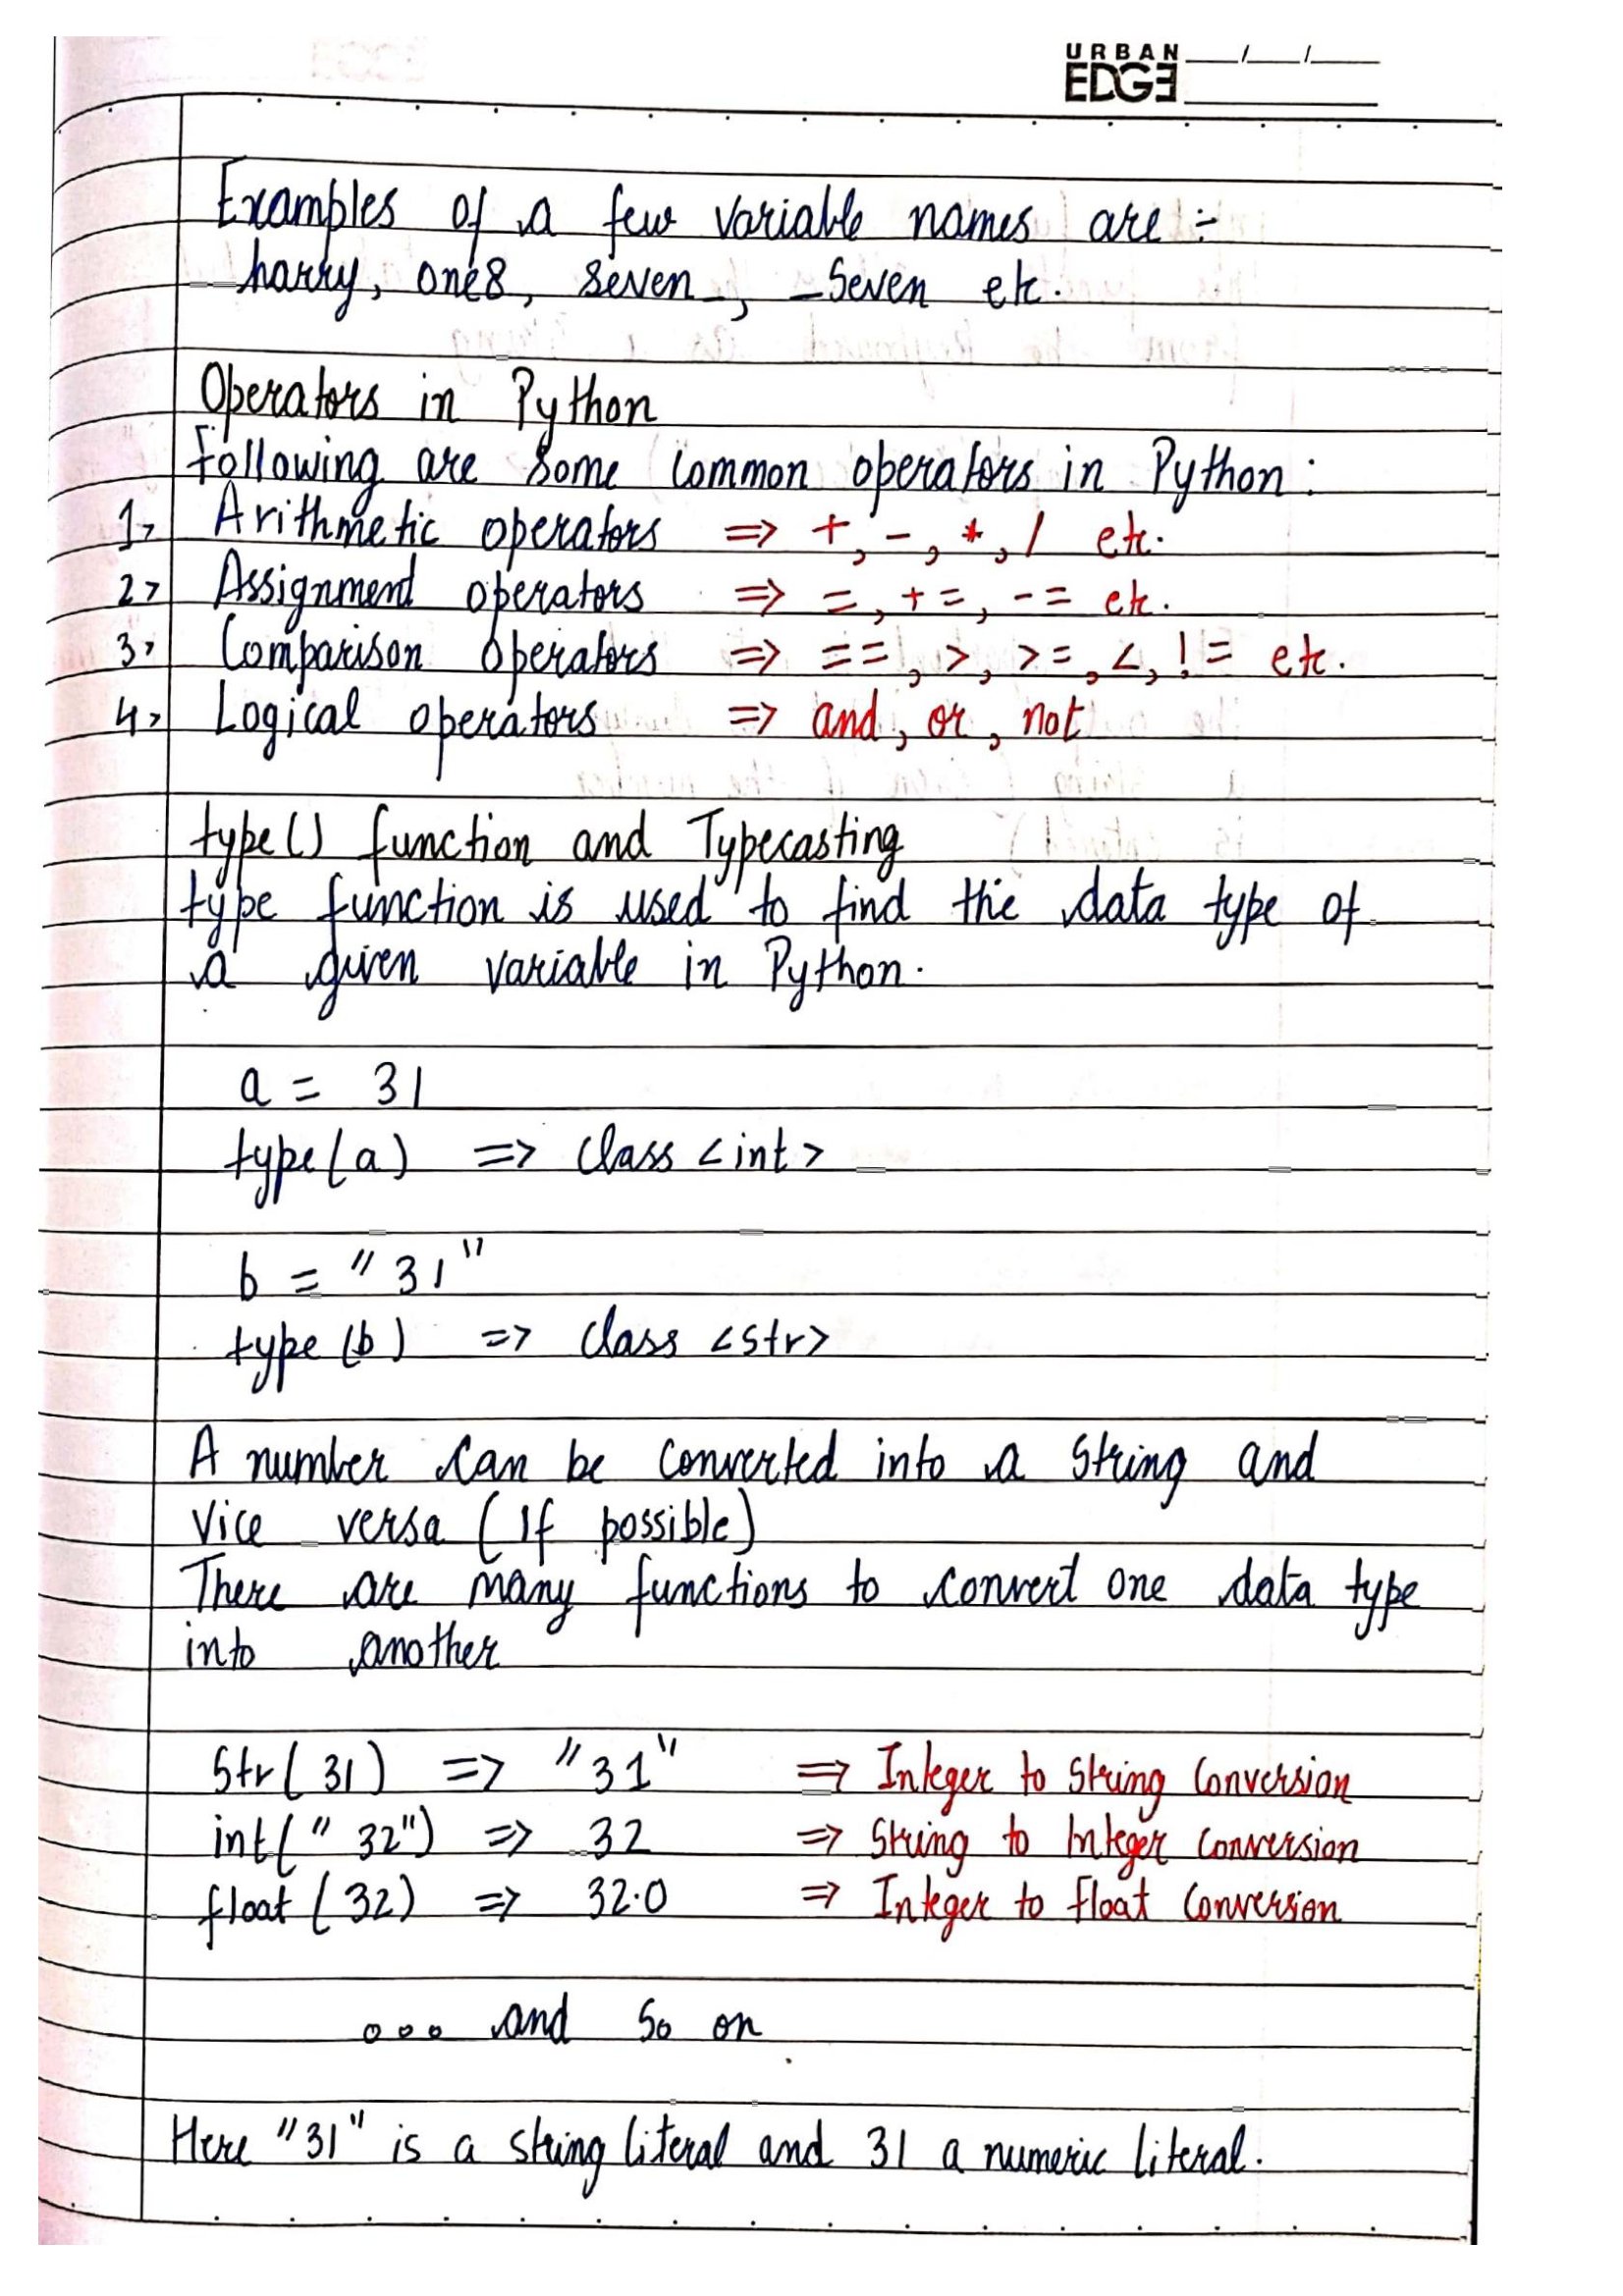 URBAN
EDGE
Examples of a few variable names are :-
harry, one8, seven_, _seven etc.
Operators in Python
Following are some common operators in Python :
1, Arithmetic operators => +, -, *, / etc.
2, Assignment operators => =, +=, -= etc.
3, Comparison operators => ==, >, >=, <, != etc.
4, Logical operators => and, or, not
type() function and Typecasting
type function is used to find the data type of
a given variable in Python.
a = 31
type(a) => class <int>
b = "31"
type(b) => class <str>
A number can be converted into a string and
vice versa (If possible)
There are many functions to convert one data type
into another
Str(31) => "31" => Integer to String Conversion
int("32") => 32 => String to Integer Conversion
float(32) => 32.0 => Integer to float Conversion
... and so on
Here "31" is a string literal and 31 a numeric literal.